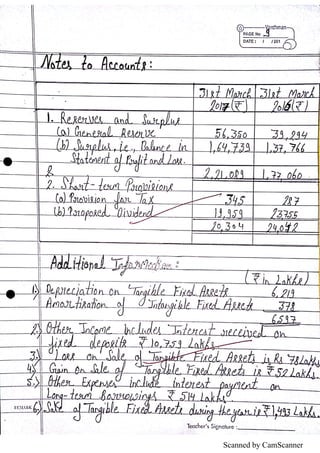 Youthman
PAGE No. 9
DATE: / /201
Notes to Accounts:
31st March 31st March
2017(₹) 2016(₹)
1. Reserves and Surplus
(a) General Reserve 56,350 39,294
(b) Surplus, i.e., Balance in 1,64,739 1,37,766
Statement of Profit and Loss.
2,21,089 1,77,060
2. Short-term Provisions
(a) Provision for Tax 345 287
(b) Proposed Dividend 19,959 23755
20,304 24,042
Additional Information:
(₹ in Lakhs)
1) Depreciation on Tangible Fixed Assets 6,219
Amortisation of Intangible Fixed Assets 378
6597
2) Other Income Includes Interest received on
fixed deposits ₹ 10,759 Lakhs.
3) Loss on Sale of Tangible Fixed Assets is Rs 78Lakhs.
4) Gain on Sale of Tangible Fixed Assets is ₹ 52 Lakhs.
5.) Other Expenses include interest payment on
Long-term Borrowings ₹ 514 Lakhs
REMARK 6) Sale of Tangible Fixed Assets during the year is ₹ 1,493 Lakhs.
Teacher's Signature:
Scanned by CamScanner